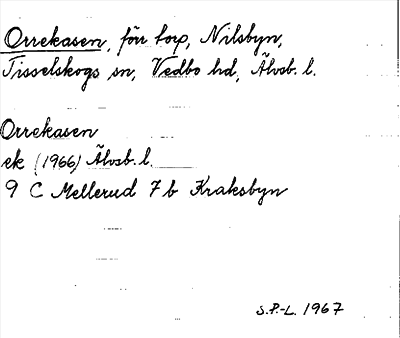 Orrekasen, förr torp, Nilsbyn,
Tisselskogs sn, Vedbo hd, Älvsb. l.
Orrekasen
ek (1966) Älvsb. l.
9 C Mellerud 7 b Kraksbyn
S.P.-L. 1967